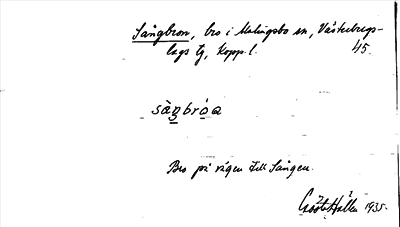 Sångbron, bro i Malingsbo sn, Västerbergs-
lags tg, Kopp. l. 45.
sàŋbróa
Bro på vägen till Sången.
Gösta Hållen 1935.